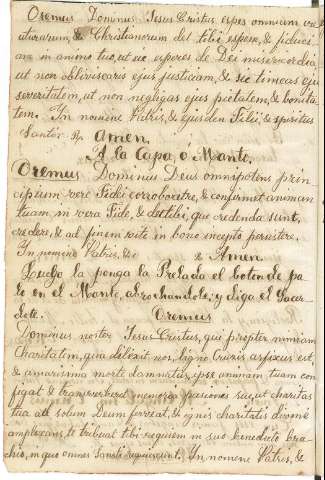 Oremus Dominus Jesus Cristus, espes omnium cre
aturarum, & Christianorum det tibi espem, & fiduci
am in animo tuo, ut sic esperes de Dei misericordia,
ut non obliviscaris ejus justiciam, & sic timeas ejus
severitatem, ut non negligas ejus pietatem, & bonita
tem. In nomine Patris, & ejusdem Filii, & spiritus
Santi. R. Amen.
A la Capa, ó Manto.
Oremus Dominus Deus omnipotens prin
cipium vere Fidei corroboret te, & confirmet animam
tuam, in vera Fide, & det tibi, que credenda sunt,
credere, & ad finem vite in bono incepto persistere.
In nomine Patris, &c & Amen.
Luego la ponga la Prelada el boton de pa
lo en el Manto, abrochandole; y diga el Sacer
dote. Oremus
Dominus noster Jesus Cristus, qui propter nimiam
charitatem, qua dilexit nos, ligno Crucis afixus est,
& amarissima morte damnatus, ipse animam tuam con
figat & transverberet memoria pasiones sue, ut charitas
tua ad solum Deum ferveat, & ignis charitatis divine
amplexans, te tribuat tibi requiem in suo benedicto bra
chio, in quo omnes Sancti requiescunt. In nomine Patris, &